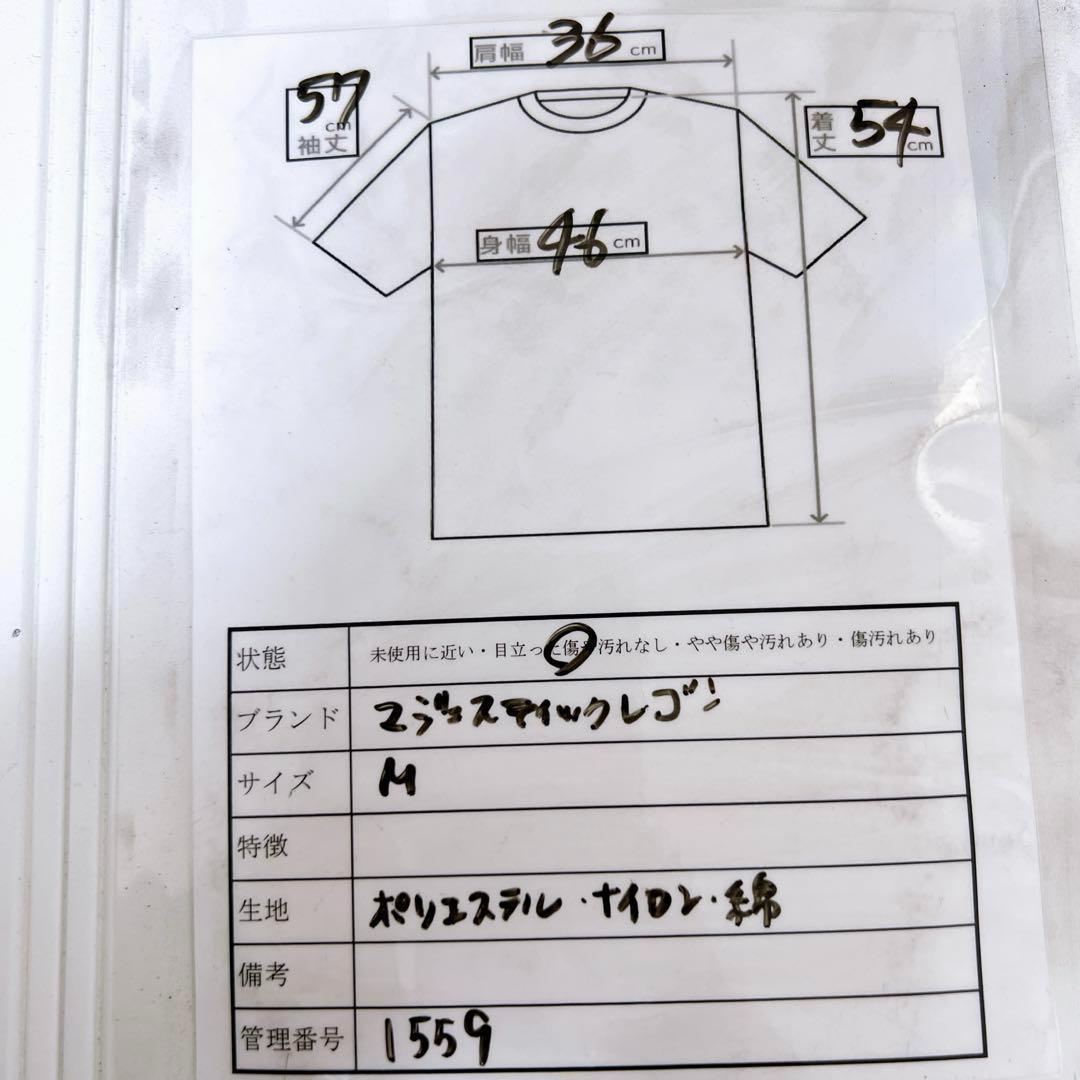 肩幅 36 cm
57 cm
袖丈
着丈 54 cm
身幅 46 cm
状態 未使用に近い・目立った傷や汚れなし・やや傷や汚れあり・傷汚れあり
ブランド マジェスティックレゴン
サイズ M
特徴
生地 ポリエステル・ナイロン・綿
備考
管理番号 1559